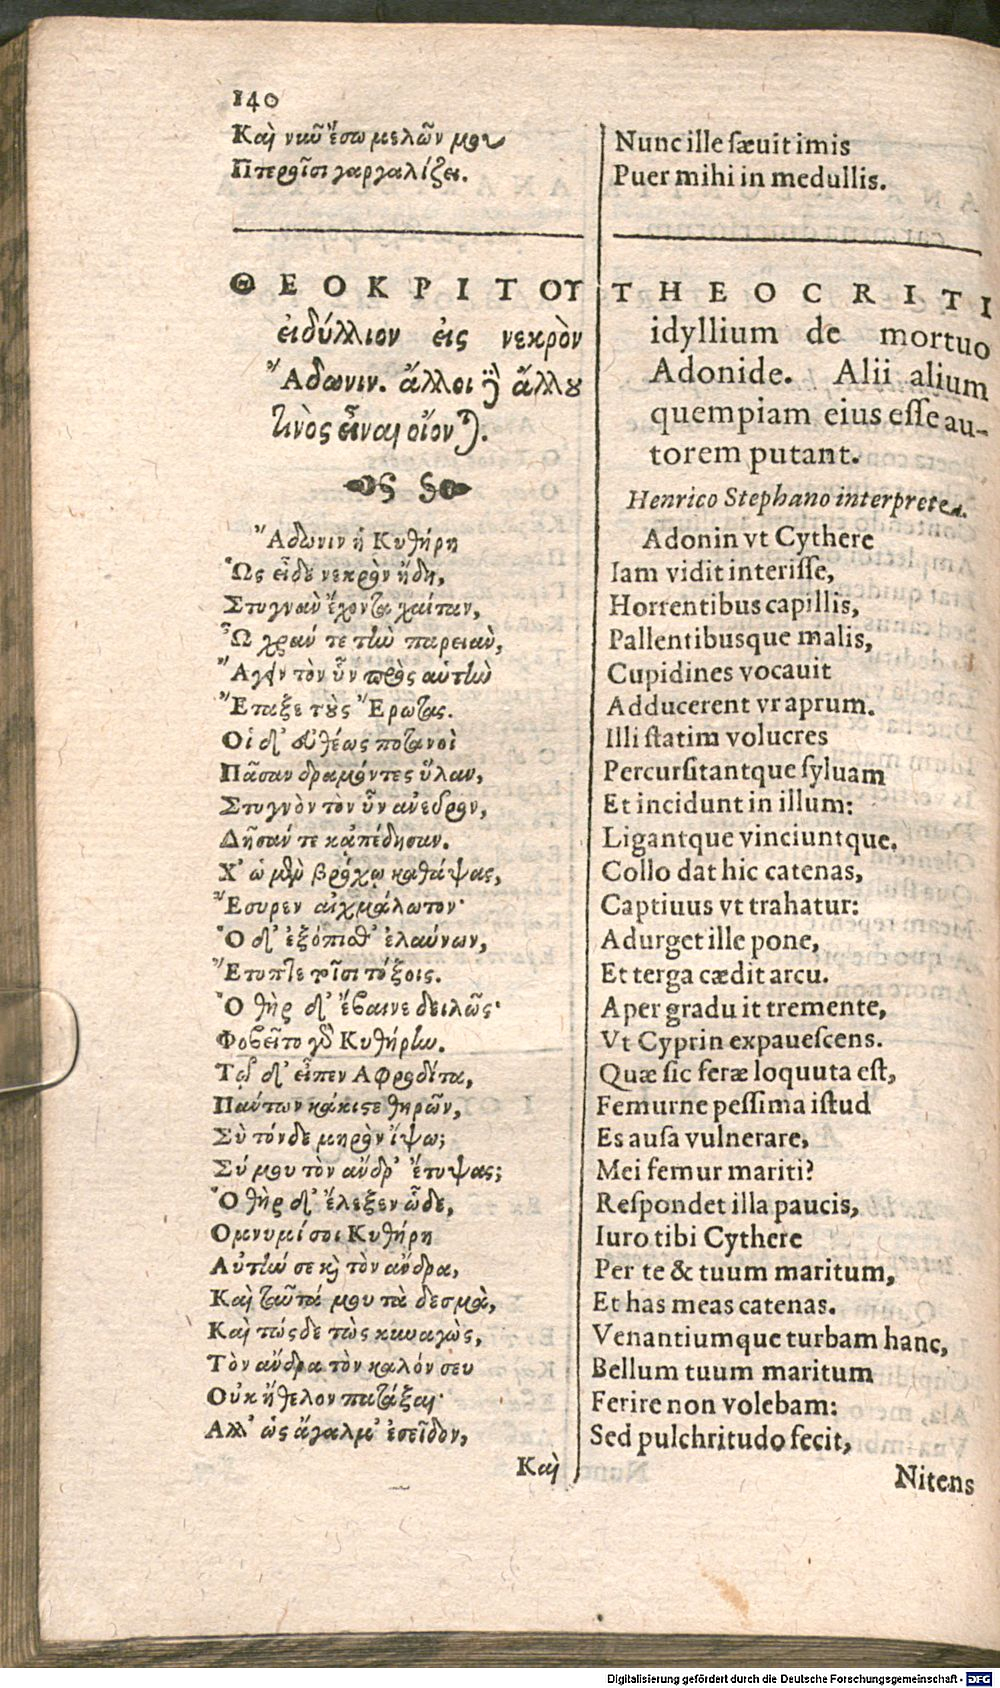 140
Καὶ νῦν ἔσω μελῶν μου
Πτεροῖσι γαργαλίζει.
ΘΕΟΚΡΙΤΟΥ
εἰδύλλιον εἰς νεκρὸν
Ἄδωνιν. ἄλλοι δὲ ἄλλου
τινὸς εἶναι οἴονται.
Ἄδωνιν ἡ Κυθήρη
Ὡς εἶδε νεκρὸν ἤδη,
Στυγνὰν ἔχοντα χαίταν,
Ὠχράν τε τὴν παρειὰν,
Ἄγειν τὸν ὗν πρὸς αὐτὴν
Ἔταξε τοὺς Ἔρωτας.
Οἱ δ' εὐθέως ποτανοὶ
Πᾶσαν δραμόντες ὕλαν,
Στυγνὸν τὸν ὗν ἀνεῦρον,
Δῆσάν τε κἀπέδησαν.
Χ' ὠ μὲν βρόχῳ καθάψας,
Ἔσυρεν αἰχμάλωτον·
Ὁ δ' ἐξόπισθ' ἐλαύνων,
Ἔτυπτε τοῖσι τόξοις.
Ὁ θὴρ δ' ἔβαινε δειλῶς·
Φοβεῖτο γὰρ Κυθήρην.
Τῷ δ' εἶπεν Αφροδίτα,
Πάντων κάκιστε θηρῶν,
Σὺ τόνδε μηρὸν ἴψω;
Σύ μου τὸν ἄνδρ' ἔτυψας;
Ὁ θὴρ δ' ἔλεξεν ὧδε,
Ομνυμί σοι Κυθήρη
Αὐτήν σε καὶ τὸν ἄνδρα,
Καὶ ταῦτά μου τὰ δεσμὰ,
Καὶ τώςδε τὼς κυναγὼς,
Τὸν ἄνδρα τὸν καλόν σευ
Οὐκ ἤθελον πατάξαι·
Αλλ' ὡς ἄγαλμ' ἐσεῖδον,
Καὶ
Nunc ille sæuit imis
Puer mihi in medullis.
THEOCRITI
idyllium de mortuo
Adonide. Alii alium
quempiam eius esse au-
torem putant.
Henrico Stephano interprete.
Adonin vt Cythere
Iam vidit interisse,
Horrentibus capillis,
Pallentibusque malis,
Cupidines vocauit
Adducerent vt aprum.
Illi statim volucres
Percursitantque syluam
Et incidunt in illum:
Ligantque vinciuntque.
Collo dat hic catenas,
Captiuus vt trahatur:
Adurget ille pone,
Et terga cædit arcu.
Aper gradu it tremente,
Vt Cyprin expauescens.
Quæ sic feræ loquuta est,
Femurne pessima istud
Es ausa vulnerare,
Mei femur mariti?
Respondet illa paucis,
Iuro tibi Cythere
Per te & tuum maritum,
Et has meas catenas.
Venantiumque turbam hanc,
Bellum tuum maritum
Ferire non volebam:
Sed pulchritudo fecit,
Nitens
Digitalisierung gefördert durch die Deutsche Forschungsgemeinschaft - DFG